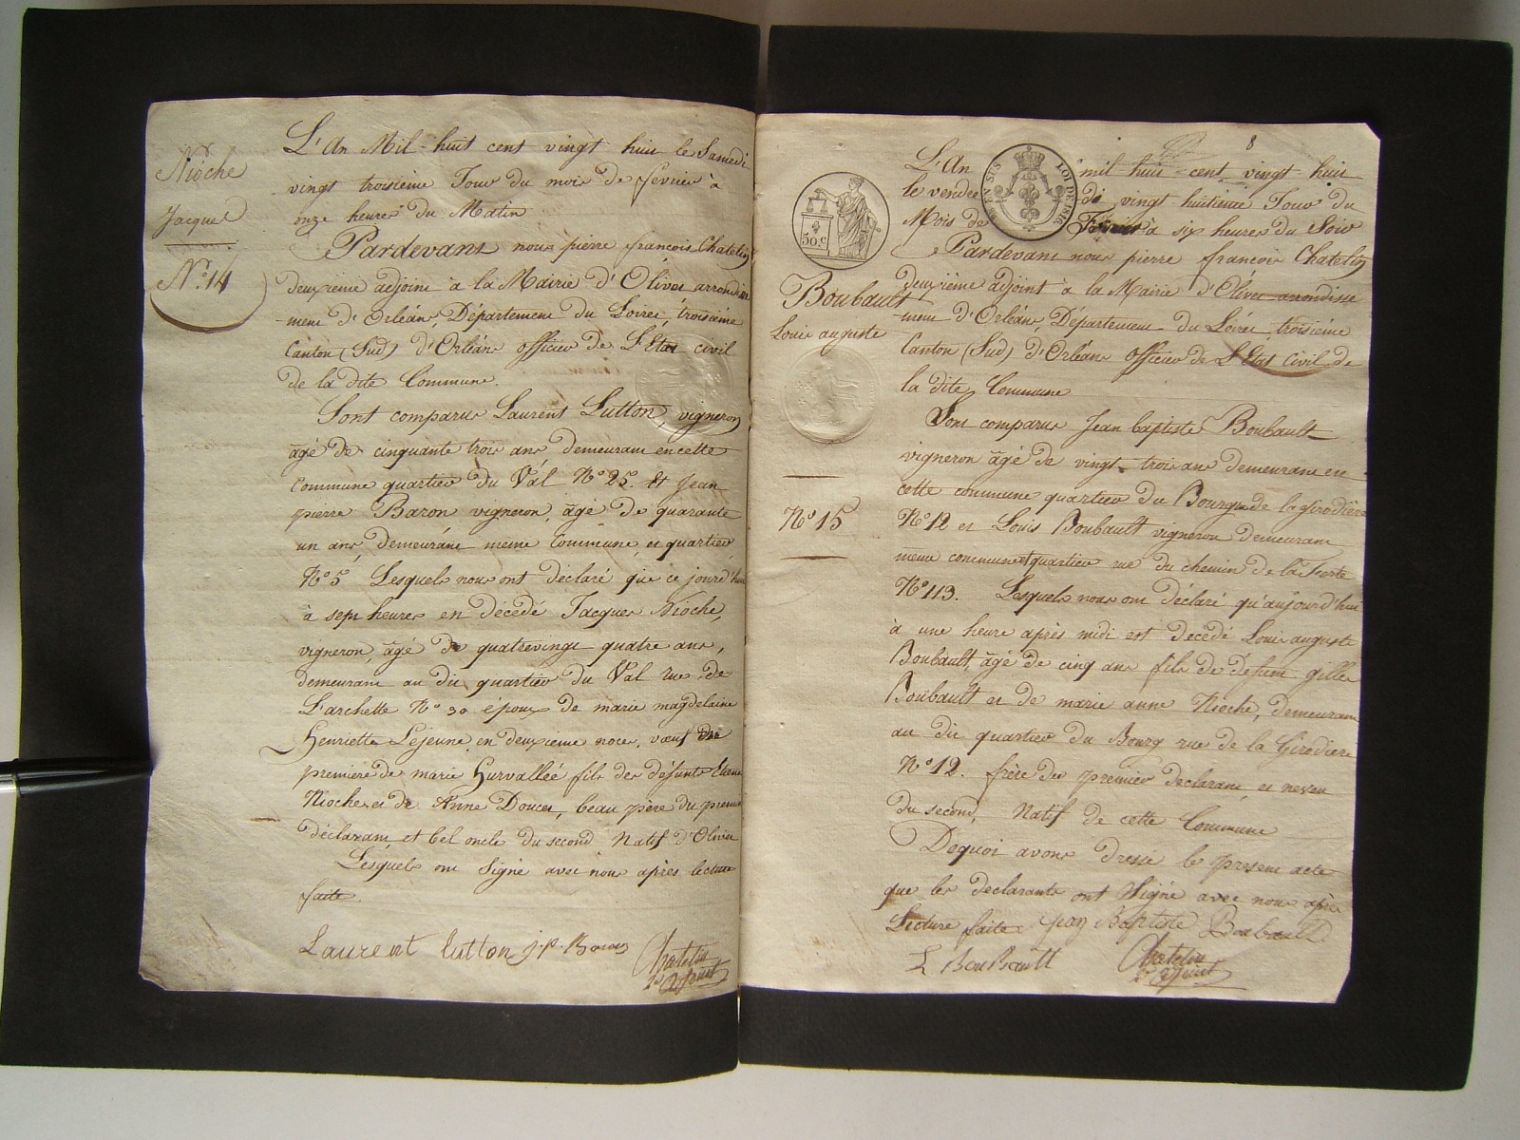 Nioche
Jacques
N° 14
L'An Mil-huit cent vingt huit le Samedi
vingt troisième Jour du mois de février à
onze heures du Matin
Pardevant nous pierre françois Chatelin
deuxieme adjoint à la Mairie d'Olivet arrondisse
-ment d'Orléans, Département du Loiret, troisième
Canton (Sud) d'Orléans officier de L'Etat civil
de la dite Commune.
Sont comparus Laurent Lutton, vigneron
âgé de cinquante trois ans demeurant en cette
Commune quartier du Val N° 25. Et Jean
pierre Baron vigneron, âgé de quarante
un ans, demeurant meme Commune, et quartier
N° 5 Lesquels nous ont déclaré que ce jourd'hui
à sept heures est décédé Jacques Nioche,
vigneron, âgé de quatrevingt quatre ans,
demeurant au dit quartier du Val rue de
L'archette N° 30 epoux de marie magdelaine
Henriette Lejeune en deuxieme noces, vœuf de
premiere de marie hurvallée fils des défunts Etienne
Nioche et de Anne Doucet, beau père du premier
déclarant, et bel oncle du second Natif d'Olivet
Lesquels ont Signé avec nous après lecture
faite.
Laurent lutton j.p. Baron
Chatelin
2e adjoint
8
50 c
EN SUS
ROI DE
Boubault
Louis auguste
N° 15
L'An mil huit-cent vingt huit
le vendredi vingt huitieme Jour du
Mois de Fevrier à six heures du Soir
Pardevant nous pierre françois Chatelin
deuxième adjoint à la Mairie d'Olivet arrondisse
-ment d'Orléans, Département du Loiret troisième
Canton (Sud) d'Orléans officier de L'Etat civil de
la dite Commune
Sont comparus Jean baptiste Boubault
vigneron âgé de vingt-trois ans demeurant en
cette commune quartier du Bourg rue de la girodière
N° 12 et Louis Boubault vigneron demeurant
même commune et quartier rue du chemin de la ferte
N° 113. Lesquels nous ont déclaré qu'aujourd'hui
à une heure après midi est décédé Louis auguste
Boubault, âgé de cinq ans fils de defunt gilles
Boubault et de marie anne Nioche, demeurant
au dit quartier du Bourg rue de la Girodiere
N° 12. frère du premier declarant et neveu
du second, Natif de cette Commune
Dequoi avons dressé le present acte
que les declarants ont Signé avec nous après
Lecture faite jean Baptiste Boubault
L Boubault
Chatelin
2e adjoint